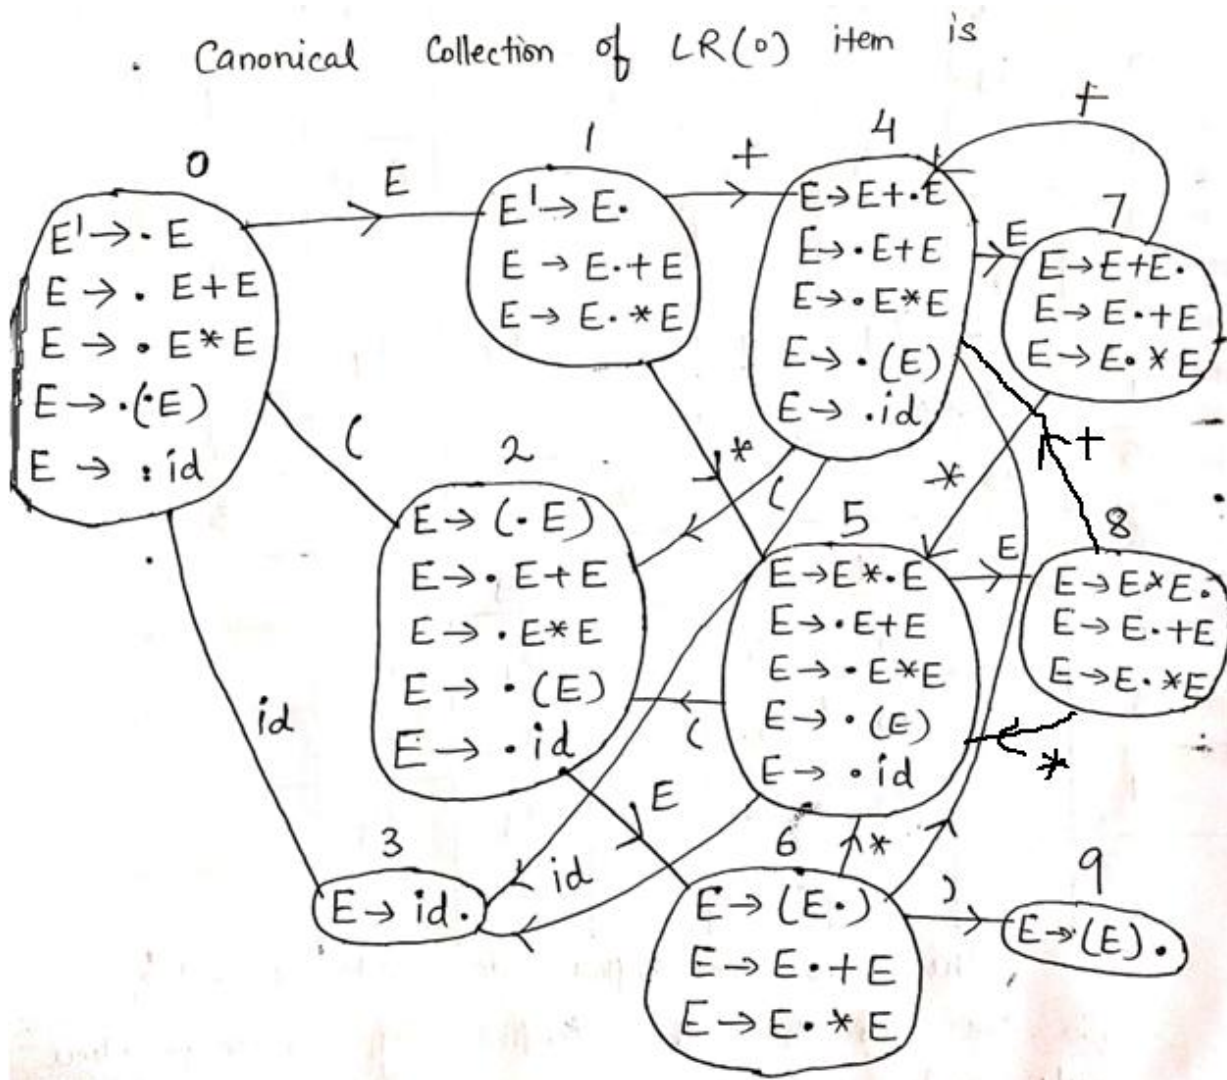 . Canonical Collection of LR(0) item is
0
E' → . E
E → . E+E
E → . E*E
E → .(.E)
E → : id
E
1
E' → E.
E → E.+E
E → E.*E
+
4
E → E+.E
E → .E+E
E → .E*E
E → .(E)
E → .id
+
E
7
E → E+E.
E → E.+E
E → E.*E
(
*
(
*
+
2
E → (.E)
E → .E+E
E → .E*E
E → .(E)
E → .id
5
E → E*.E
E → .E+E
E → .E*E
E → .(E)
E → .id
E
8
E → E*E.
E → E.+E
E → E.*E
(
*
id
E
3
E → id.
id
6
E → (E.)
E → E.+E
E → E.*E
*
)
9
E → (E).